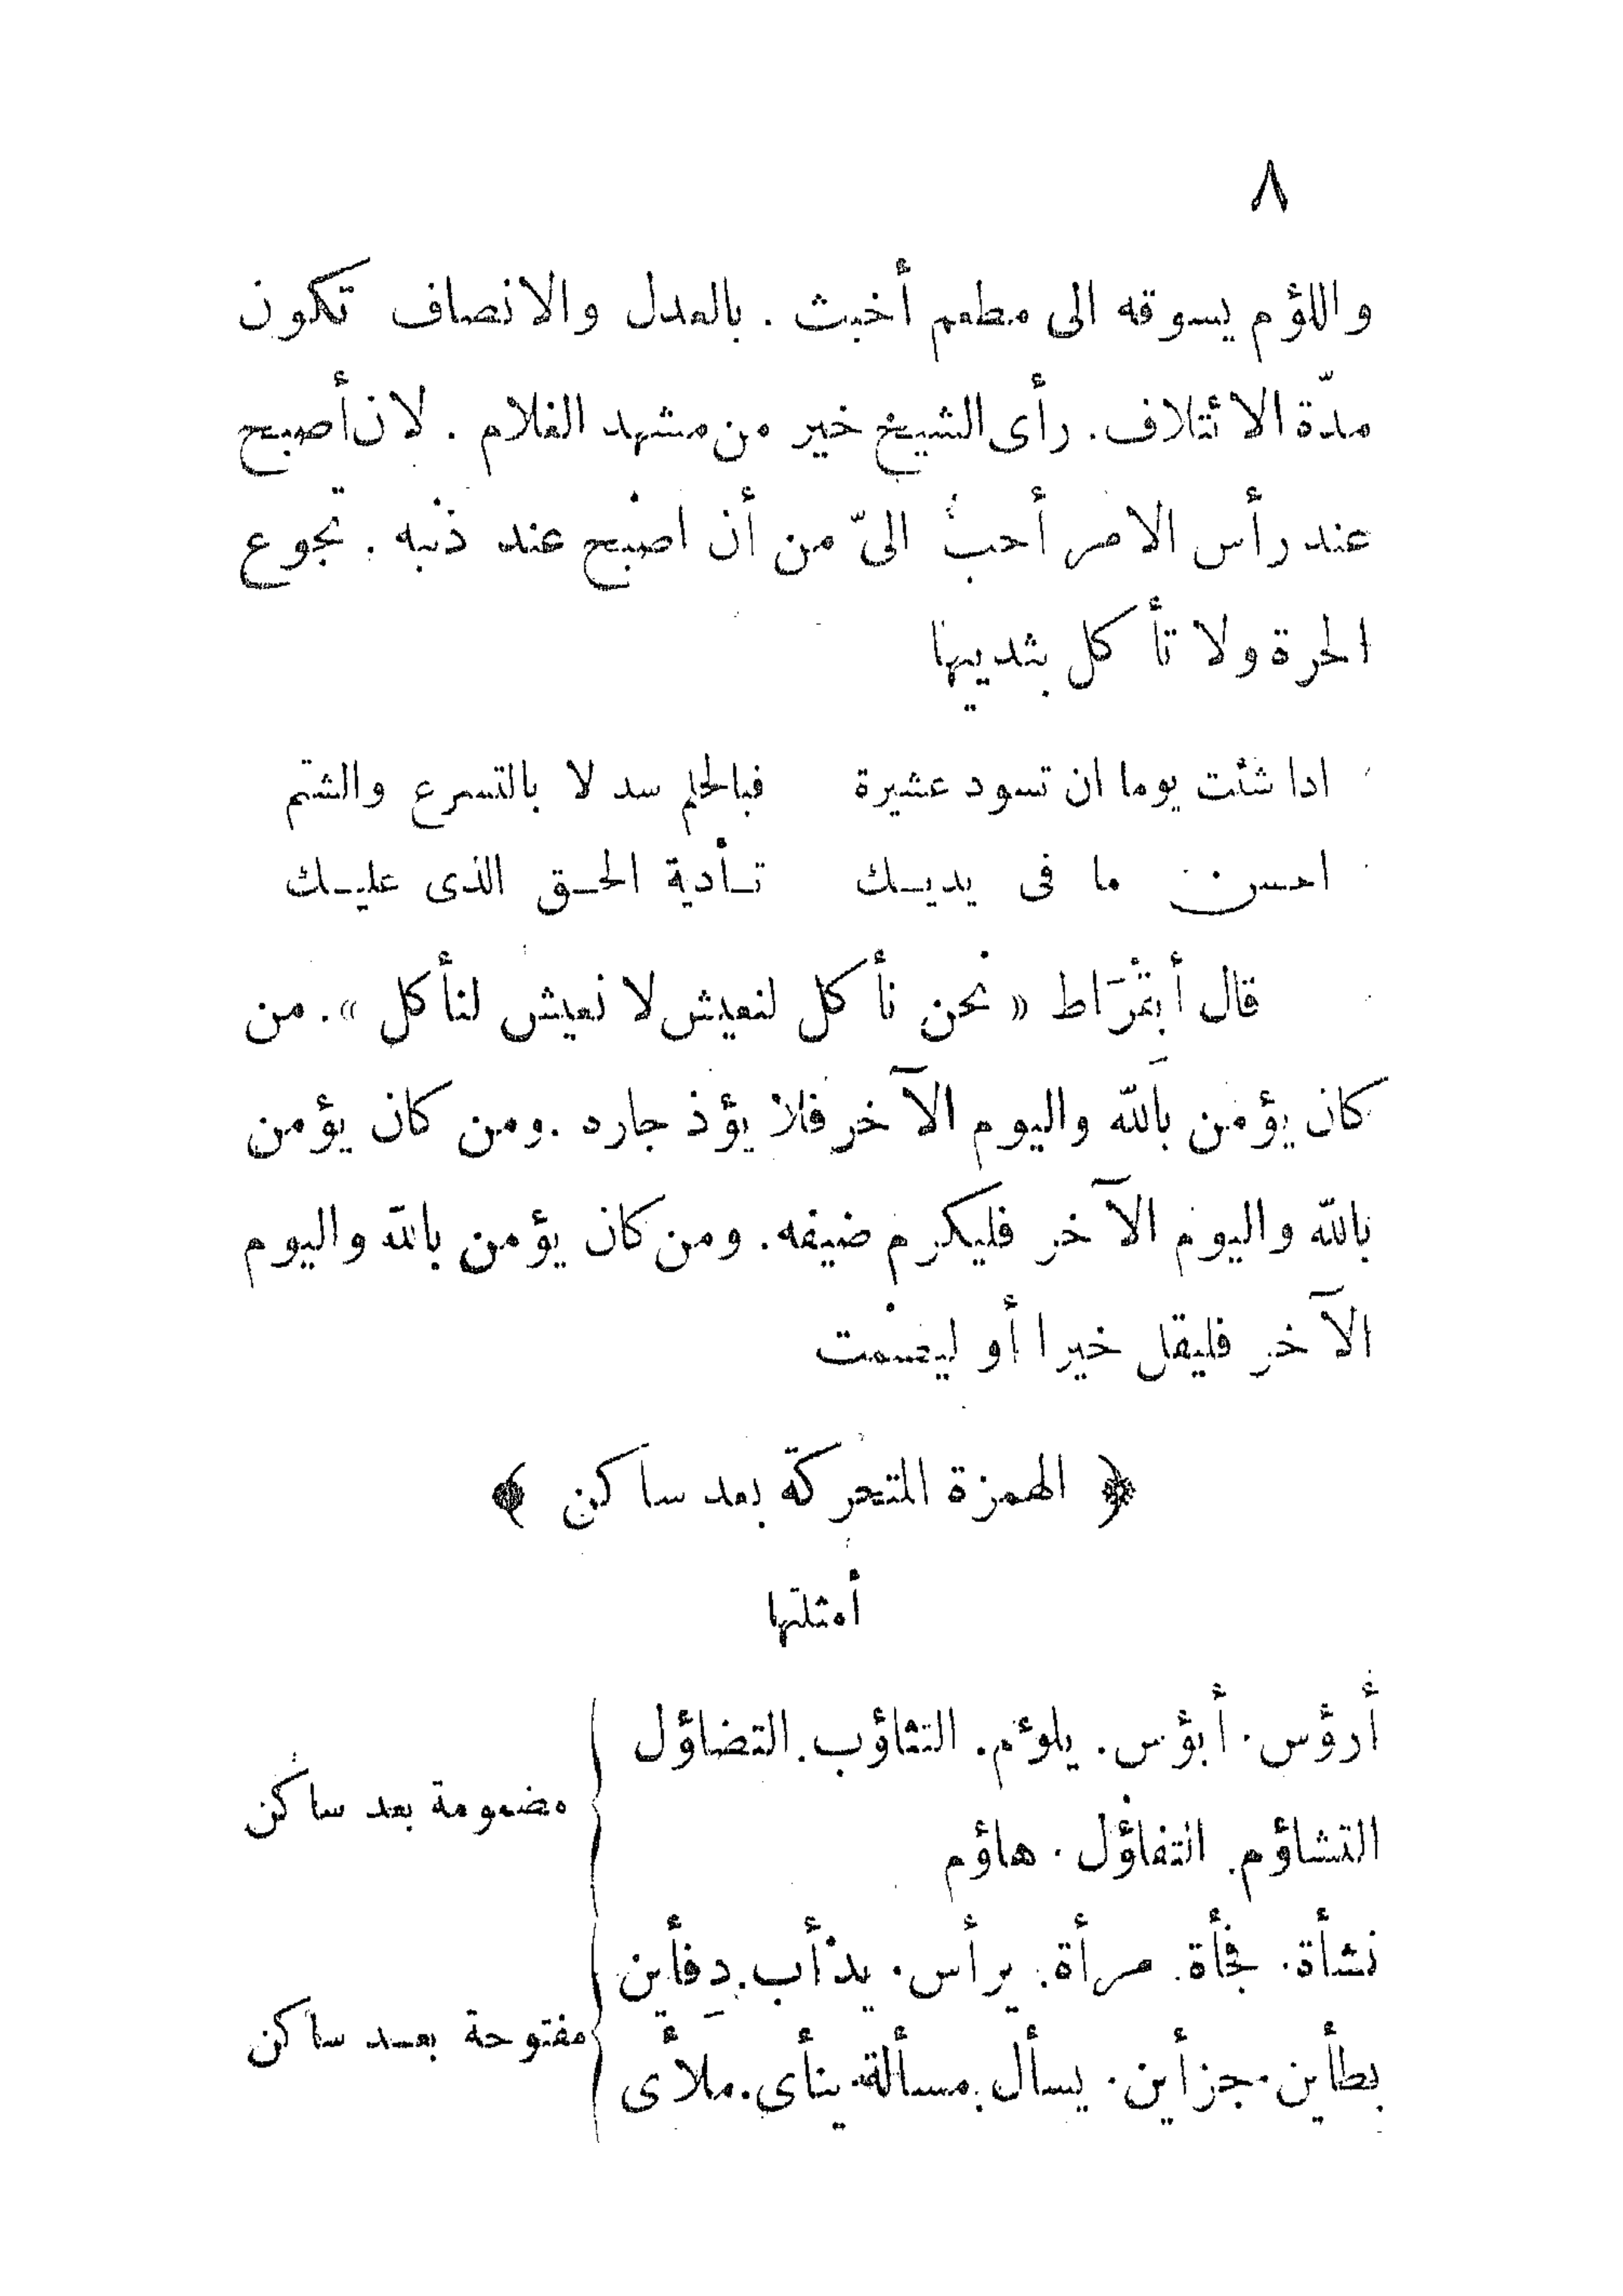 ٨
واللؤم يسوقه الى مطعم أخبث . بالعدل والانصاف تكون
مدّة الائتلاف. رأى الشيخ خير من مشهد الغلام . لان أصبح
عند رأس الامر أحبُّ الىّ من أن اصبح عند ذنبه . تجوع
الحرة ولا تأكل بثدييها
اذا شئت يوما ان تسود عشيرة فبالحلم سد لا بالتسرع والشتم
احسن ما فى يديك تأدية الحق الذى عليك
قال أبقْرَاط « نحن نأكل لنعيش لا نعيش لنأكل » . من
كان يؤمن بالله واليوم الآخر فلا يؤذ جاره . ومن كان يؤمن
بالله واليوم الآخر فليكرم ضيفه . ومن كان يؤمن بالله واليوم
الآخر فليقل خيرا أو ليصمت
﴿ الهمزة المتحركة بعد ساكن ﴾
أمثلتها
أرؤس . أبؤس . يلؤم . التثاؤب . التضاؤل
التشاؤم . التفاؤل . هاؤم
مضمومة بعد ساكن
نشأة . فجأة . مرأة . يرأس . يدْأب . دِفأين
بطأين . جزأين . يسأل . مسألة . ينأى . ملأى
مفتوحة بعد ساكن